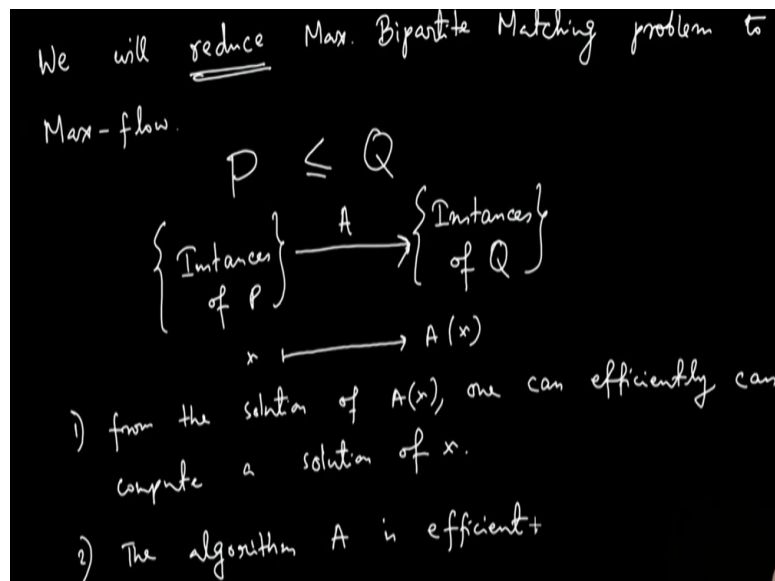 We will reduce Max. Bipartite Matching problem to
Max-flow.
P ≤ Q
{Instances of P} A {Instances of Q}
x ↦ A(x)
1) from the solution of A(x), one can efficiently can
compute a solution of x.
2) The algorithm A is efficient